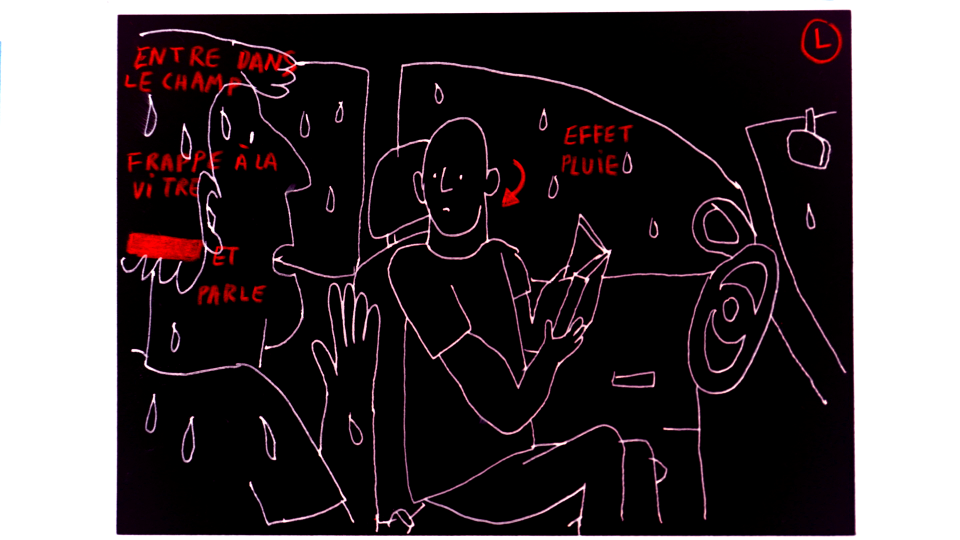 ENTRE DANS
LE CHAMP
FRAPPE À LA
VITRE
ET
PARLE
EFFET
PLUIE
L